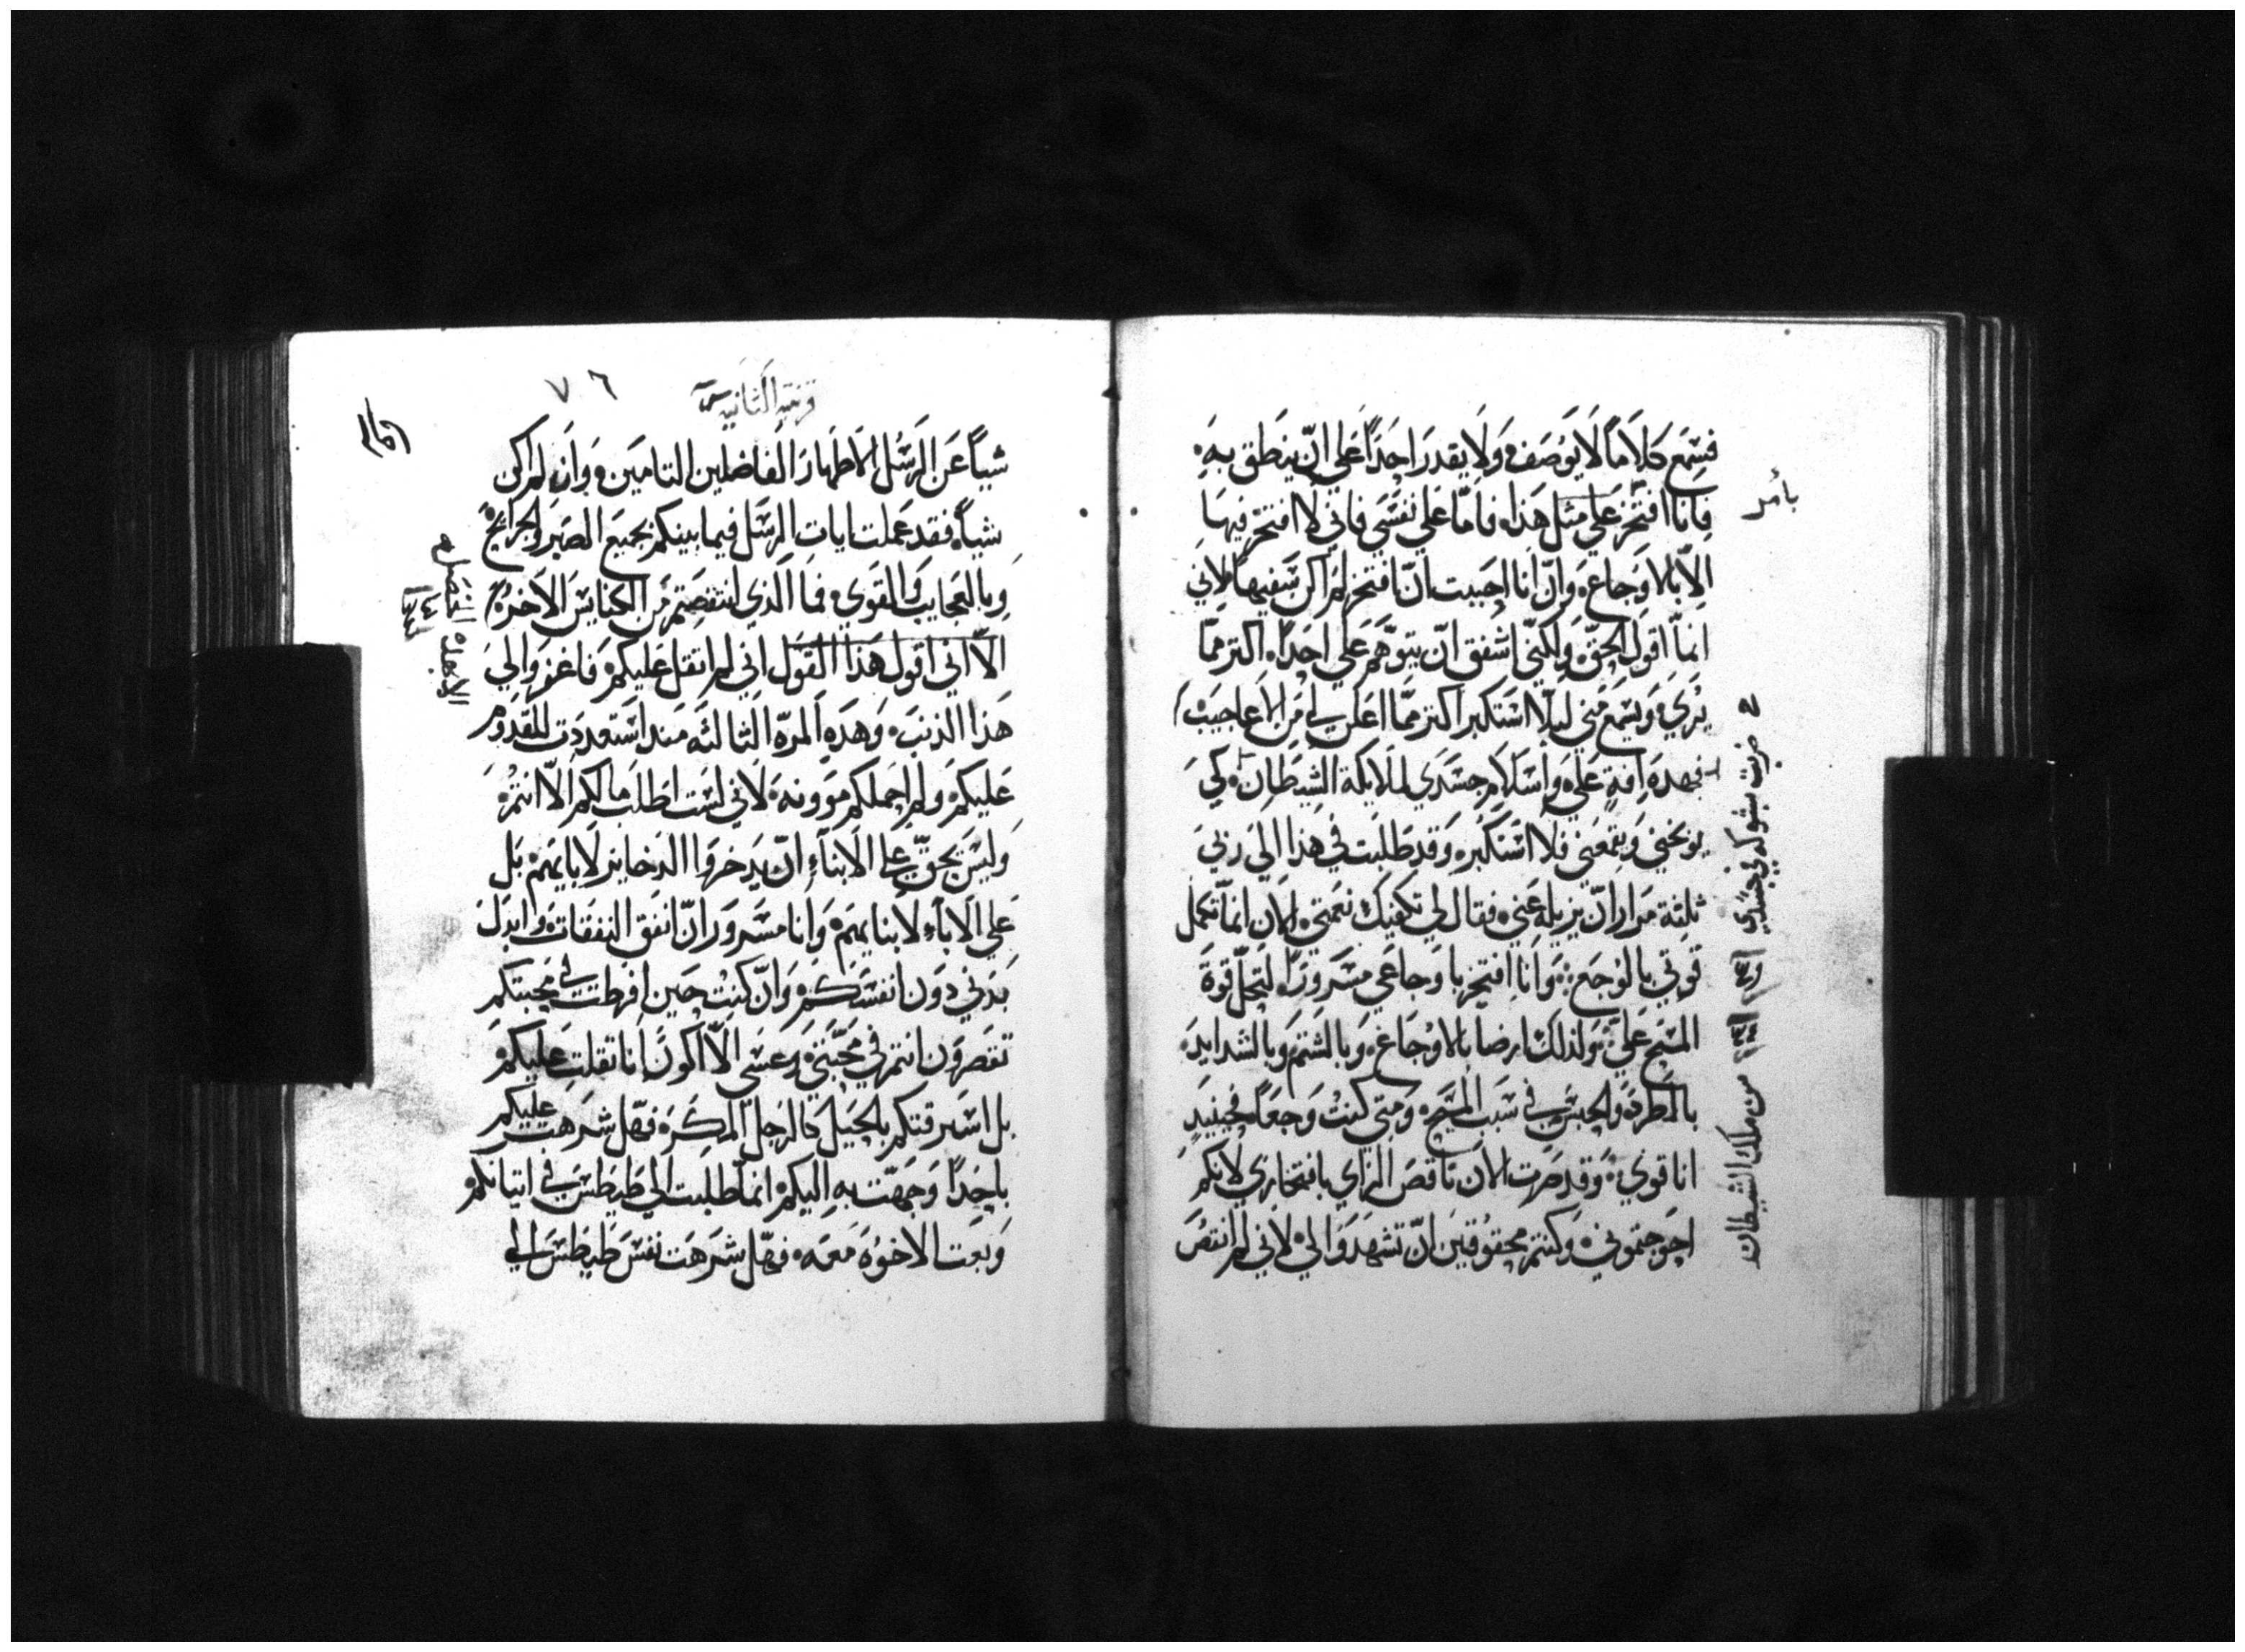 فسَمع كلاَماً لاَ يوَصَف وَلاَ يقدرَ احَداً عَلي انّ ينطق بهَ
فانا افتخر عَلي مثل هَذا فاَمّا عَلي نفسَي فاني لاَ افتخر فيهَا
الاّ بالاوَجاعَ وَانّ انا احَببت انّ افتخر لمَ اكن سَفيهاً لاني
انماّ اقول الحقّ وَلكنيّ اشفق انّ يتوّهمَ عَلي احَداً اكتر ممّا
يرَيَ وَيسَمَع مَني ليلاّ اسَتكبر اكتر ممّا اعَلن لي مَن الاعاجيَب
فهدهَ افة عَلي وَاسَلاَم جسَدَي لملايكة الشيَطان كيَ
يوَبخني وَيقمعَني فلاَ اسَتكبر وَقد طَلبَت في هَذا الي رَبيَ
ثلثة مَرار انّ يزيله عَني فقال لي تكفيَك نعَمتي الان انماّ تكمل
قوَتي بالوَجَع وَاَنا افتخر باوَجاعَي مسَروَراً لتحَلّ قوةَ
المسَيح عَليّ وَلذلك ارضا بالاوَجَاع وَبالشتمَ وَبالشدايدَ
بالطردَ وَالحبسَ في سَبب المسَيح وَمتي كنتَ وَجعَاً فحَينيَدٍ
انا قوَي وَقد صَرت الان ناقصَ الراي بافتخاري لانكم
احَوَجتموَني وَكنتم محقوَقين انّ تشهَدوَا لي لاني لم انتقصَ
بأمر
ضربت بشوكه في جسَدي
من ملك الشيطان
قرنتيه الثانيه
٧٦
شياً عَن الرَسُل الاطهارَ الفاضلين التامَين وَان لم اكن
شياً فقد عَملت ايات الرسَل فيما بينكم بجميعَ الصَبر وَالجرَايح
وَبالعَجايب وَالقوَي فماَ الَذي انتقصَتم مَن الكنايسَ الاَخر
الاّ اني اقول هَذا القوَل اني لم اتقل عَليكم فاغفروَا ليَ
هَذا الذنبَ وَهَدهِ المرّه الثالثَه مَند اسَتعددَت للقدوَم
عَليكم وَلم احَملكم موَونهَ لاَني لسَت اطَلَب مالكم الاّ انتُم
وَليسَ يحَقّ عَلي الابنآءِ انّ يدَخروَا الدخاير لاَبايهَم بَل
عَلي الاَباء لاَبنايهَم وَانا مسَروَرَ انّ انفق النفقات وَابدَل
بَدَني دوَن انفسَكم وَانّ كنت حَين افرطت في محَبتكم
تقصَروَن انتم في محَبّتي وَعسَي الاّ اكوَن اَنا تقلت عَليكم
بل اسَرقتكم بالحَيَل كالرَجل المكرَه فهَل شرَهَت عليكم
باحَداً وَجَهّت بهِ اليكم انماّ طلبت الي طَيطَسَ في اتيانكم
وَبعَت الاخوُهَ مَعَه فهَل شرَهَت نفسَ طَيطَسَ الي